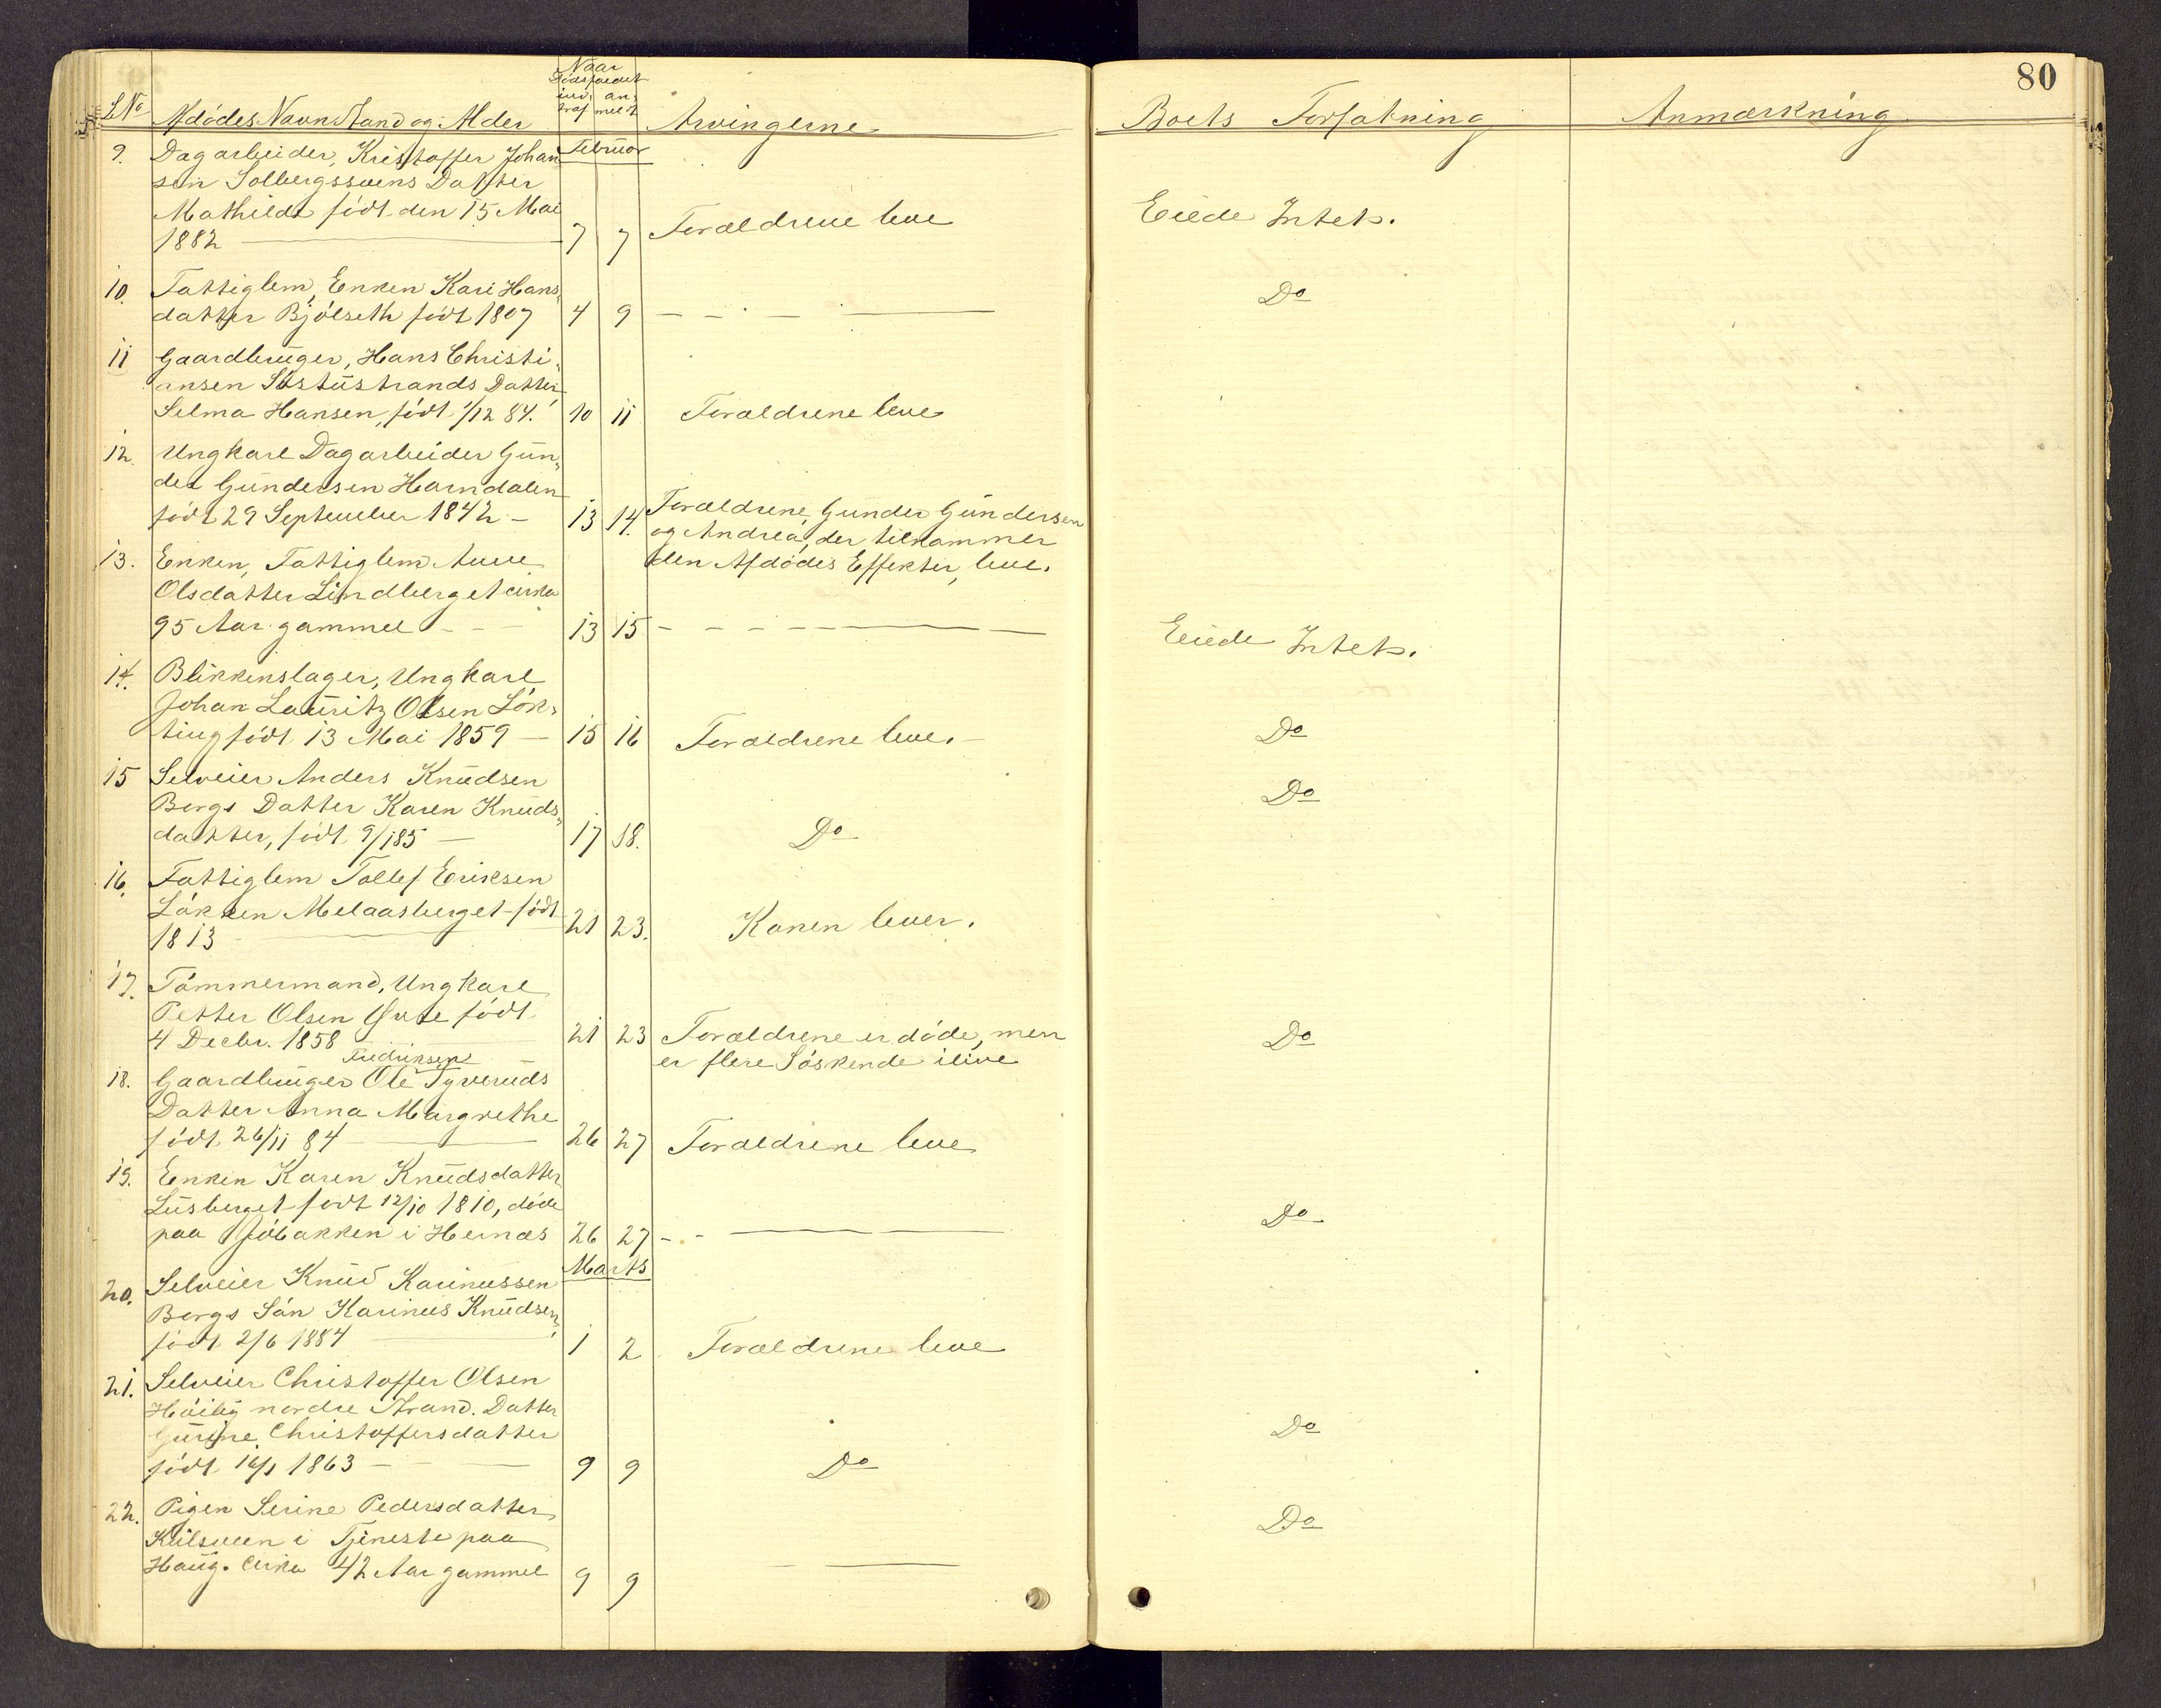 80
Naar
Dødsfaldet
ind- an-
traf meldt
L№ Afdødes Navn Stand og Alder Arvingerne Boets Forfatning Anmærkning
Februar
9. Dagarbeider, Kristoffer Johan
sen Solbergssveens Datter
Mathilde født den 15 Mai
1882 — 7 7 Forældrene leve Eiede Intet.
10. Fattiglem, Enken Kari Hans-
datter Bjölseth født 1807 4 9 — Do
11 Gaardbruger, Hans Christi-
ansen Söstustrands Datter
Selma Hansen, født 1/12 84. 10 11 Forældrene leve
12. Ungkarl Dagarbeider Gun-
der Gundersen Harndalen
født 29 September 1842 — 13 14. Forældrene, Gunder Gundersen
og Andrea, der tilkommer
den Afdødes Effekter, leve.
13. Enken, Fattiglem Anne
Olsdatter Lindberget cirka
95 Aar gammel — 13 15 — Eiede Intet.
14. Blikkenslager, Ungkarl
Johan Lauritz Olsen Løk-
ting født 13 Mai 1859 — 15 16 Forældrene leve. — Do
15 Selveier Anders Knudsen
Bergs Datter Karen Knuds- Do
datter, født 9/1 85 — 17 18. Do
16. Fattiglem Tollef Eriksen
Løkken Melaasberget født
1813 — 21 23. Konen lever.
17. Tømmermand, Ungkarl
Petter Olsen født
4 Decbr. 1858 21 23 Forældrene er døde, men Do
er flere Søskende ilive
Fredriksen
18. Gaardbruger Ole Tyveruds
Datter Anna Margrethe
født 26/11 84 — 26 27 Forældrene leve
19. Enken Karen Knudsdatter
Lusberget født 12/10 1810, døde Do
paa Sjøbakken i Hernæs 26 27 —
Marts
20. Selveier Knud Karinussen
Bergs Søn Karinus Knudsen,
født 2/6 1884 — 1 2 Forældrene leve
21. Selveier Christoffer Olsen
nordre Strand. Datter
Gurine Christoffersdatter Do
født 16/1 1863 — 9 9 Do
22. Pigen Serine Pedersdatter
Kilsveen i Tjeneste paa Do
Haug. Cirka 42 Aar gammel 9 9 —